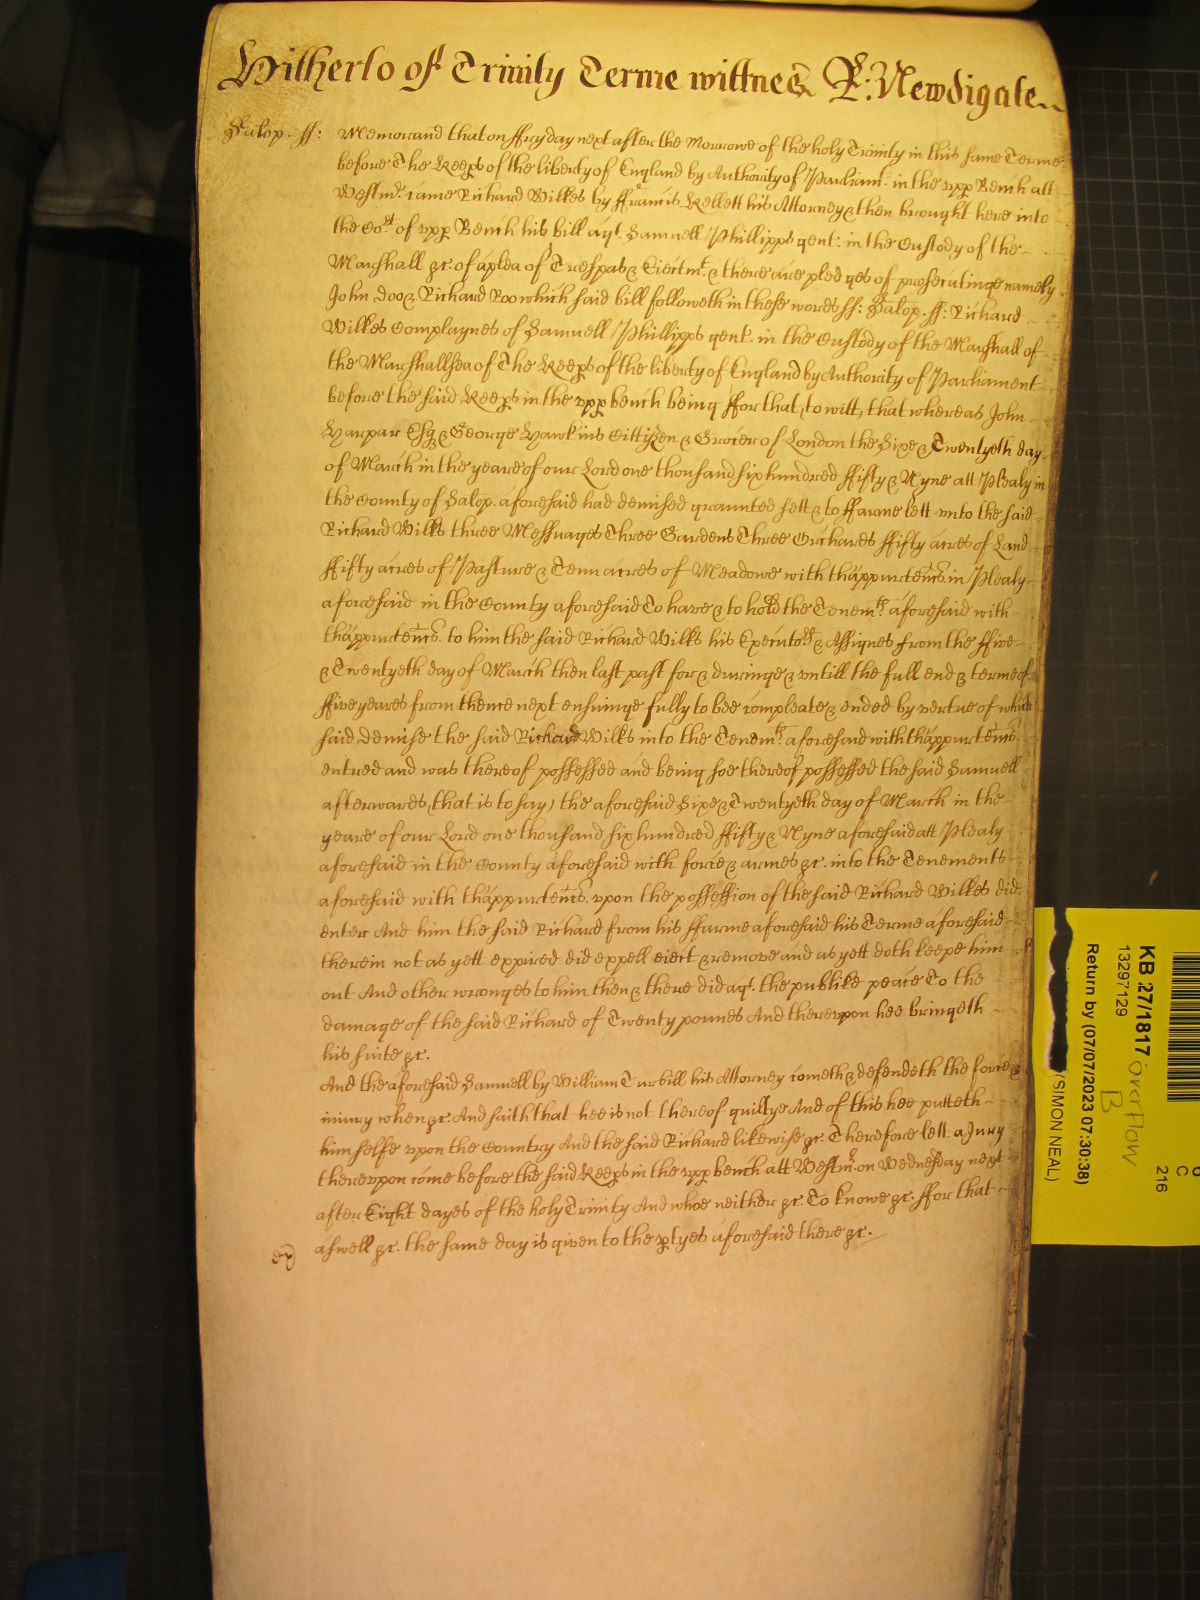 Hitherto of Trinity Terme wittnes R: Newdigate
Salop. ss: Memorand that on ffryday next after the Morrowe of the holy Trinity in this same Terme
before The Keeps of the liberty of England by Authority of Parliamt. in the upp Bench att
Westmr. came Richard Wilkes by ffrancis Kellett his Attorney & then brought here into
the Cort. of upp Bench his bill agt. Samuell Phillipps gent: in the Custody of the
Marshall &c. of a plea of Trespas & Eiectmt. & there are pledges of prosecutinge namely
John Doo & Richard Roo which said bill followeth in these words ss: Salop. ss: Richard
Wilkes Complaynes of Samuell Phillipps gent. in the Custody of the Marshall of
the Marshallsea of The Keeps of the liberty of England by Authority of Parliament
before the said Keeps in the upp bench being ffor that, to witt, that whereas John
Harpar Esq & George Hawkins Cittizen & Grocer of London the Sixe & Twentyeth day
of March in the yeare of our Lord one thousand six hundred ffifty & Nyne att Plealy in
the County of Salop. aforesaid had demised graunted sett & to ffarme lett unto the said
Richard Wilks three Messuages Three Gardens Three Orchards ffifty acres of Land
ffifty acres of Pasture & Tenn acres of Meadowe with thappurtencs. in Plealy
aforesaid in the County aforesaid To have & to hold the Tenemts. aforesaid with
thappurtencs. to him the said Richard Wilks his Executors & Assignes from the ffive
& Twentyeth day of March then last past for & duringe & untill the full end & terme of
ffive yeares from thence next ensuinge fully to bee compleate & ended by vertue of which
said demise the said Richard Wilks into the Tenemts. aforesaid with thappurtencs.
entred and was thereof possessed and being soe thereof possessed the said Samuell
afterwards, that is to say, the aforesaid Sixe & Twentyeth day of March in the
yeare of our Lord one thousand six hundred ffifty & Nyne aforesaid att Plealy
aforesaid in the County aforesaid with force & armes &c. into the Tenements
aforesaid with thappurtencs. upon the possession of the said Richard Wilkes did
enter And him the said Richard from his ffarme aforesaid his Terme aforesaid
therein not as yett expired did expell eiect & remove and as yett doth keepe him
out And other wronges to him then & there did agt. the publike peace To the
damage of the said Richard of Twenty pounes And thereupon hee bringeth
his suite &c.
And the aforesaid Samuell by William Turbill his Attorney cometh & defendeth the force &
iniury when &c. And saith that hee is not thereof guiltye And of this hee putteth
himselfe upon the Country And the said Richard likewise &c. Therefore lett a Jury
thereupon come before the said Keeps in the upp bench att Westmr. on Wednesday next
after Eight dayes of the holy Trinity And whoe neither &c. To knowe &c. ffor that
aswell &c. the same day is given to the ptyes aforesaid there &c.
KB 27/1817 overflow
B
13297129
Return by (07/07/2023 07:30:38)
(SIMON NEAL)
C
216